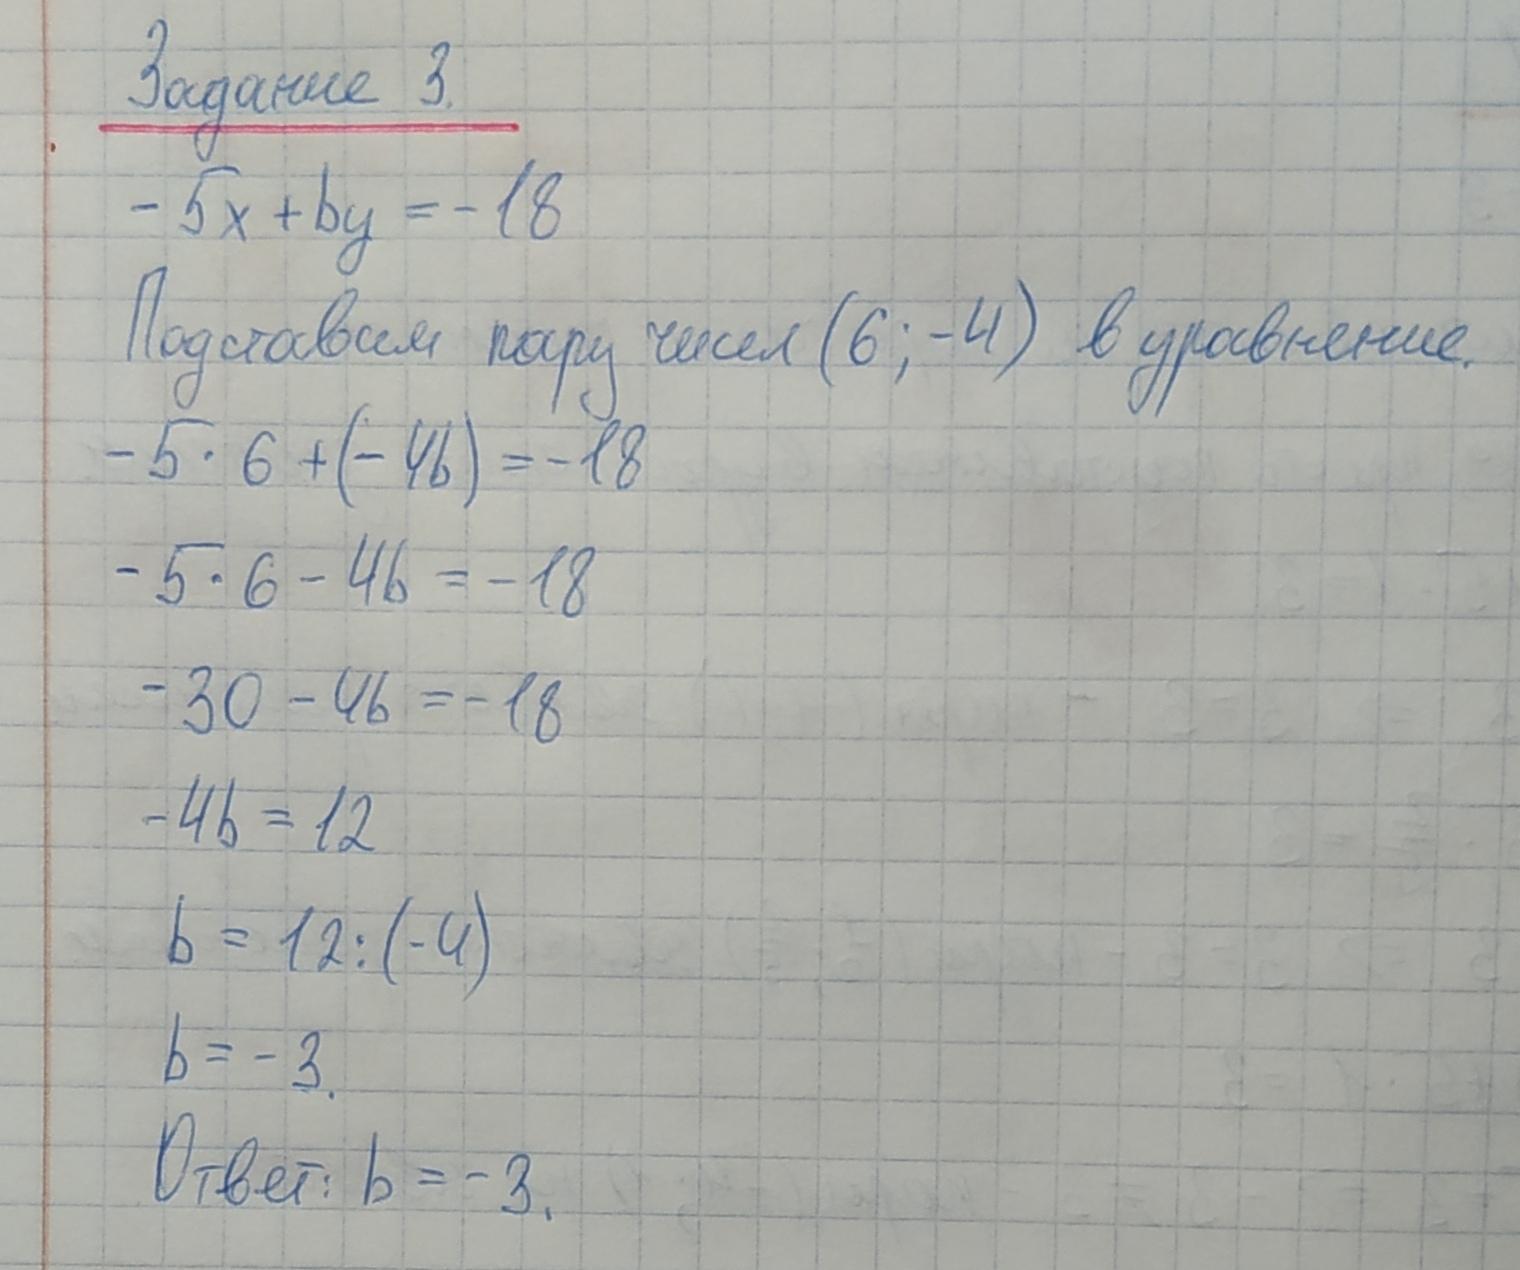 Задание 3.
-5x + by = -18
Подставим пару чисел (6; -4) в уравнение.
-5 · 6 + (-4b) = -18
-5 · 6 - 4b = -18
-30 - 4b = -18
-4b = 12
b = 12 : (-4)
b = -3.
Ответ: b = -3.